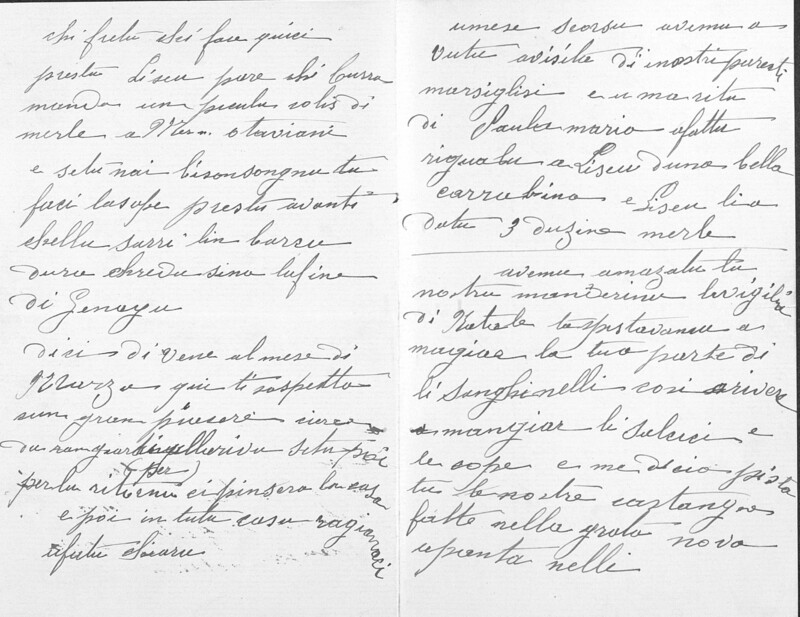 chi fretu chi face quici
prestu Liseu pare chi burra
manda un picculu colis di
merle a Mem. otaviani
e setu nai bisonsongnu tu
faci lasape prestu avanti
chella sarri lin barcu
dura chredu sino lafine
di Genayu
dici di vene al mese di
Marzo qui ti sospetta
sum gran piacere
da
(per)
per lu ritornu ci pinsera la casa
e poi in tutu casu ragionaci
afutu
umese scorsu avemu a
vutu avisite di i nostri paresti
marsiglisi e u maritu
di Paula maria afattu
rigualu a Liseu duna bella
carrabina e Liseu li a
datu 3 duzine merle
avemu amazatu tu
nostru mandzerinu la vigilia
di Natale taspitavamu a
mangiaa la tua parte di
li Sanghinelli cosi arivera
a mangiar li Salcici e
le cope e me dicio pista
tu le nostre castangne
fatte nella grata nova
upanta nelli